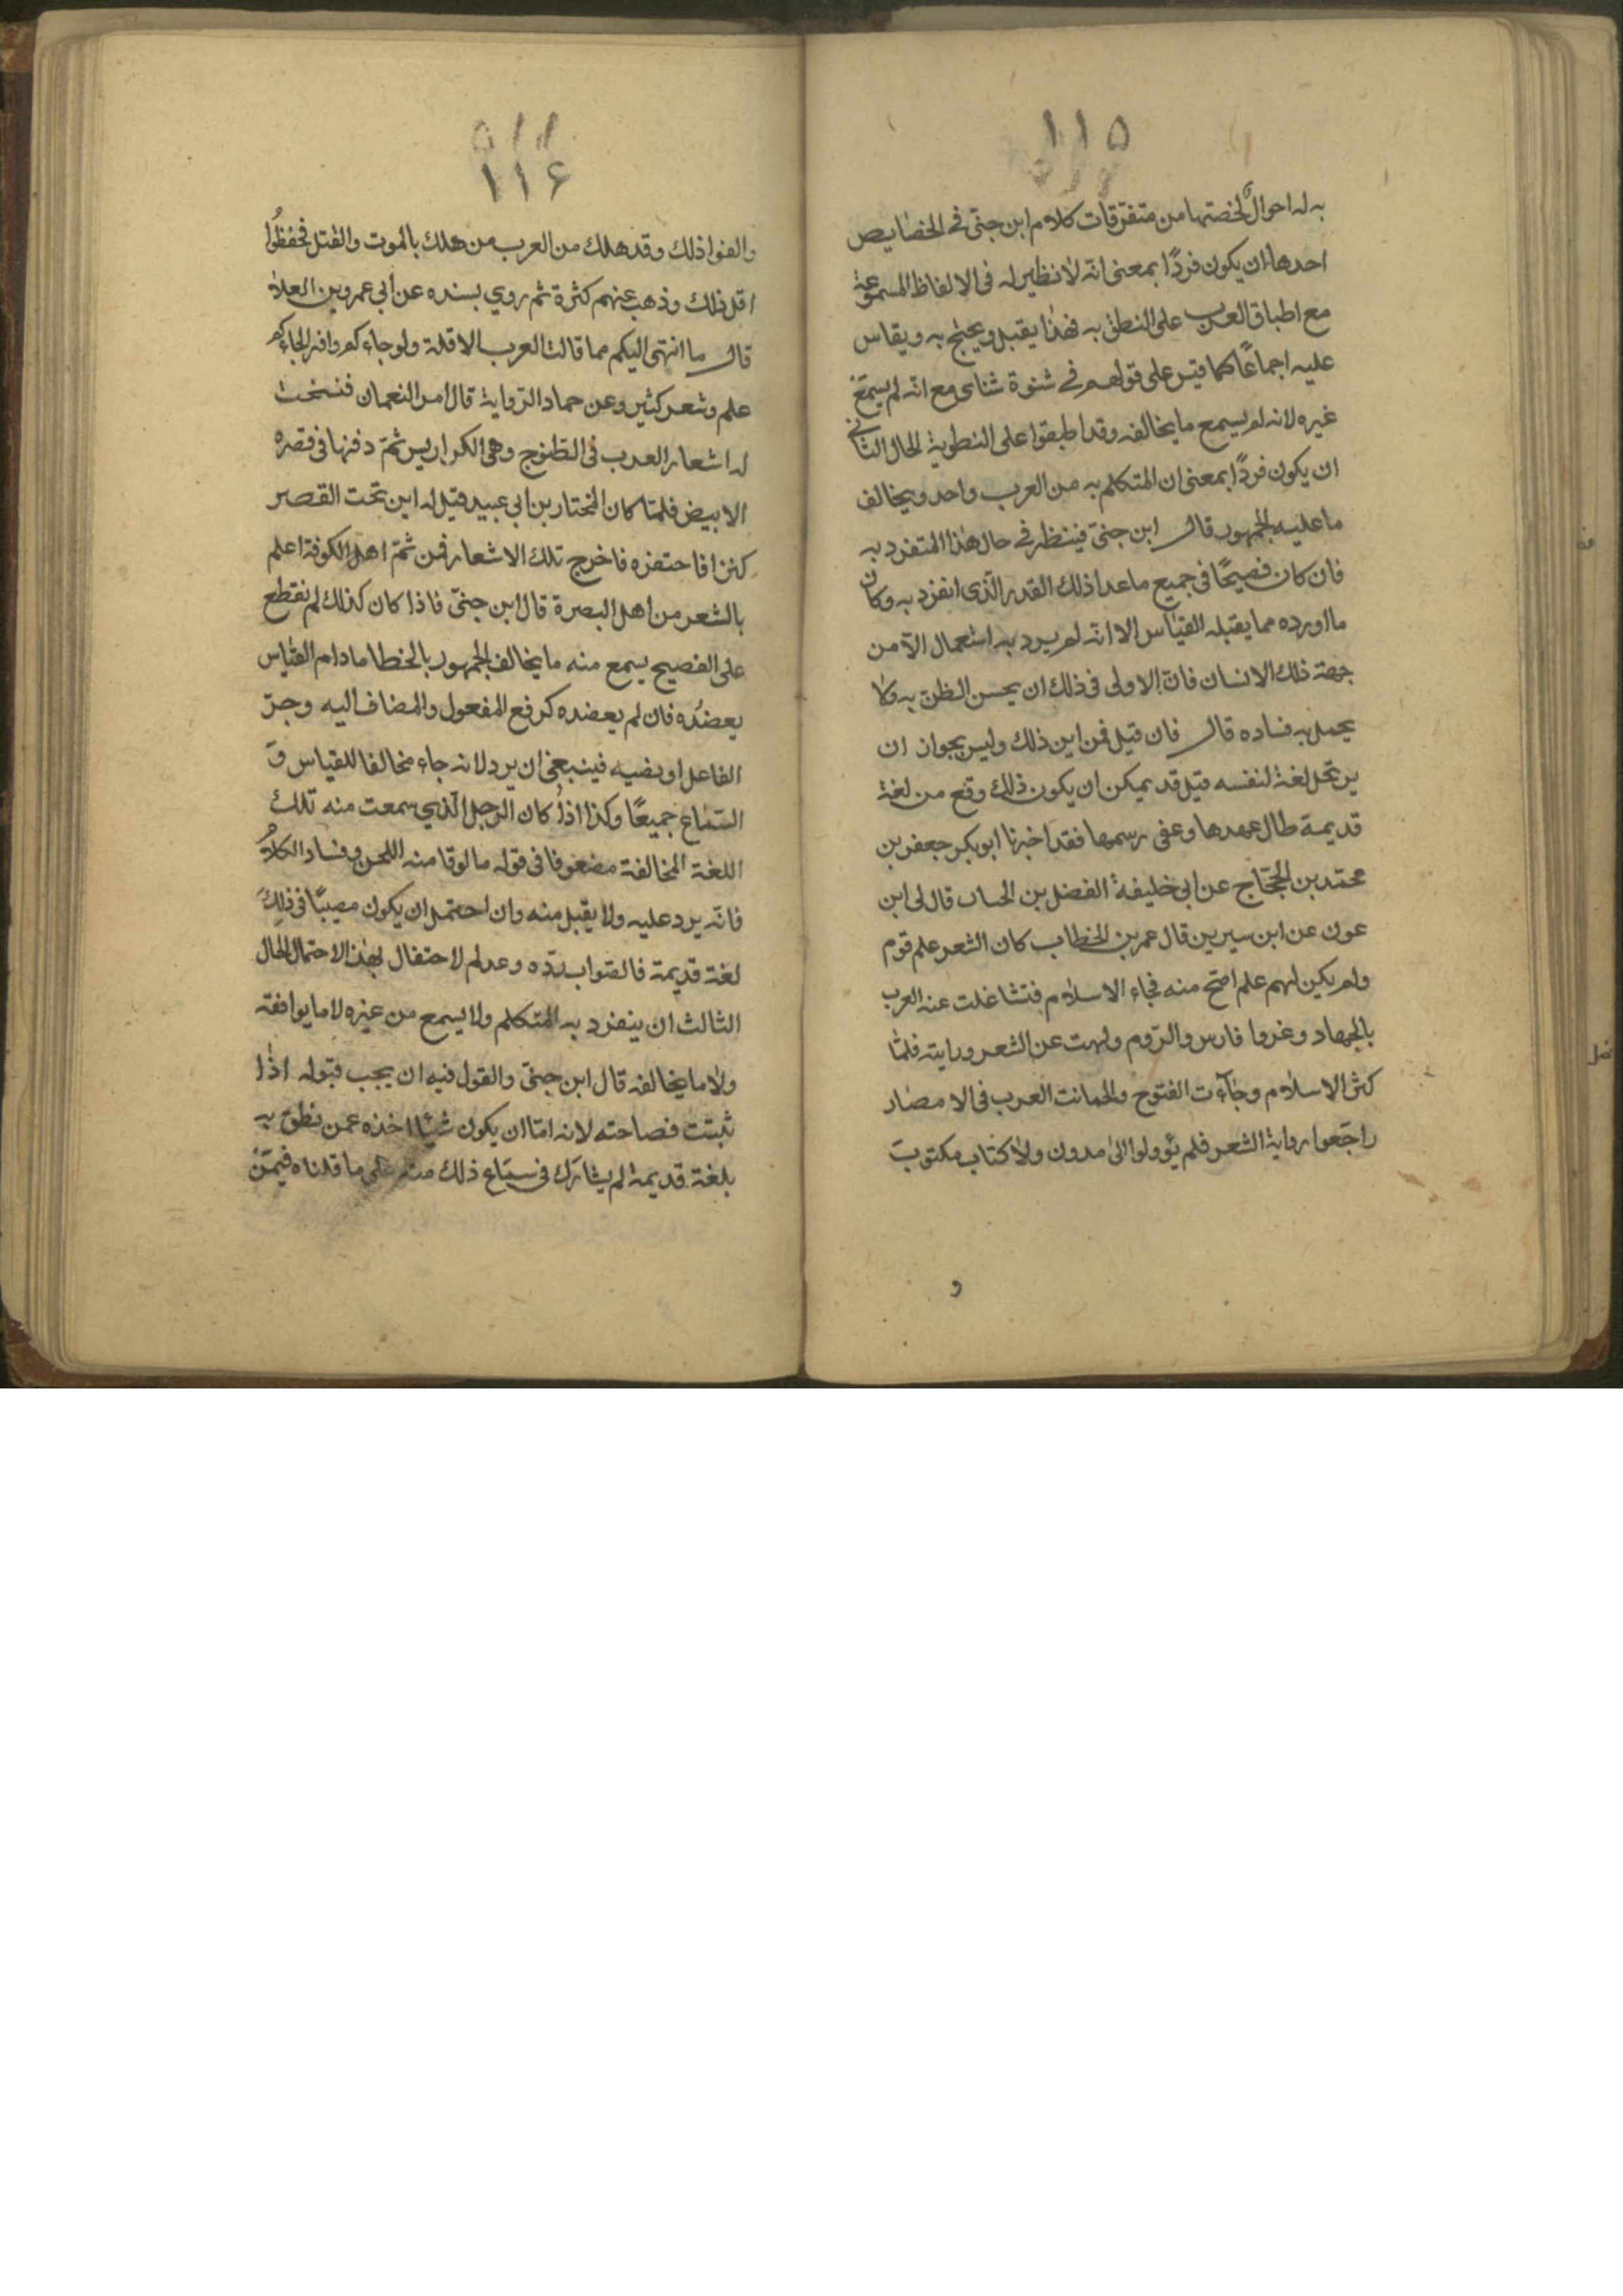 ١١٥
به له احوال لخصتها من متفرقات كلام ابن جنّى فے الخصايص
احدها ان يكون فردًا بمعنى انّه لا نظير له فى الالفاظ المسموعة
مع اطباق العرب على النطق به فهذا يقبل ويحتج به ويقاس
عليه اجماعًا كما قيس على قولهم فے شنوة شناى مع انّه لم يسمع
غيره لانه لم يسمع ما يخالفه وقد اطبقوا على النطوية الحال الثانے
ان يكون فردًا بمعنى ان المتكلم به من العرب واحد ويخالف
ما عليه الجمهور قال ابن جنىّ فينظر فے حال هذا المتفرد به
فان كان فصيحًا فى جميع ما عدا ذلك القدر الّذى انفرد به وكان
ما اورده مما يقبله القياس الا انّه لم يرد به استعمال الّا من
جهة ذلك الانسان فانّ الاولى فى ذلك ان يحسن الظن به ولا
يحمل به فساده قال فان قيل فمن اين ذلك وليس يجوان ان
يرتحل لغة لنفسه قيل قد يمكن ان يكون ذلك وقع من لغة
قديمة طال عهدها وعفى رسمها فقد اخبرنا ابو بكر جعفر بن
محمّد بن الحجّاج عن ابى خليفة الفضل بن الحساب قال لى ابن
عون عن ابن سيرين قال عمر بن الخطاب كان الشعر علم قوم
ولم يكن لهم علم اصحّ منه فجاء الاسلام فتشاغلت عنه العرب
بالجهاد وغزوا فارس والرّوم ولهت عن الشعر ورايته فلمّا
كثر الاسلام وجآءت الفتوح والحمانت العرب فى الامصار
راجعوا رواية الشعر فلم يؤولوا الى مدون ولا كتاب مكتوب
و
١١۶
والفوا ذلك وقد هلك من العرب من هلك بالموت والقتل فحفظوا
اقل ذلك وذهب عنهم كثرة ثم روي بسنده عن ابى عمرو بن العلاء
قال ما انتهى اليكم مما قالت العرب الا قلة ولو جاءكم وافر الجاءكم
علم وشعر كثير وعن حماد الرّواية قال امر النعمان فنسخت
له اشعار العرب فى الطنوج وهى الكراريس ثمّ دفنها فى قصره
الابيض فلمّا كان المختار بن ابى عبيد قيل له ان تحت القصر
كنزا فاحتفره فاخرج تلك الاشعار فمن ثمّ اهل الكوفة اعلم
بالشعر من اهل البصرة قال ابن جنىّ فاذا كان كذلك لم نقطع
على الفصيح يسمع منه ما يخالف الجمهور بالخطا ما دام القياس
يعضده فان لم يعضده كرفع المفعول والمضاف اليه وجرّ
الفاعل او نصبه فينبغى ان يرد لانه جاء مخالفا للقياس و
السّماع جميعًا وكذا اذا كان الرجل الّذي سمعت منه تلك
اللغة المخالفة مضعوفا فى قوله مالوقا منه اللحن وفساد الكلام
فانّه يرد عليه ولا يقبل منه وان احتمل ان يكون مصيبًا فى ذلك
لغة قديمة فالصّواب ردّه وعدم لاحتفال بهذا الاحتمال الحال
الثالث ان ينفرد به المتكلم ولا يسمع من غيره لا ما يوافقه
ولا ما يخالفه قال ابن جنىّ والقول فيه ان يجب قبوله اذا
ثبتت فصاحته لانه امّا ان يكون شيئا اخذه عمن نطق به
بلغة قديمة لم يشارك فى سماع ذلك منه على ما قلناه فيمن